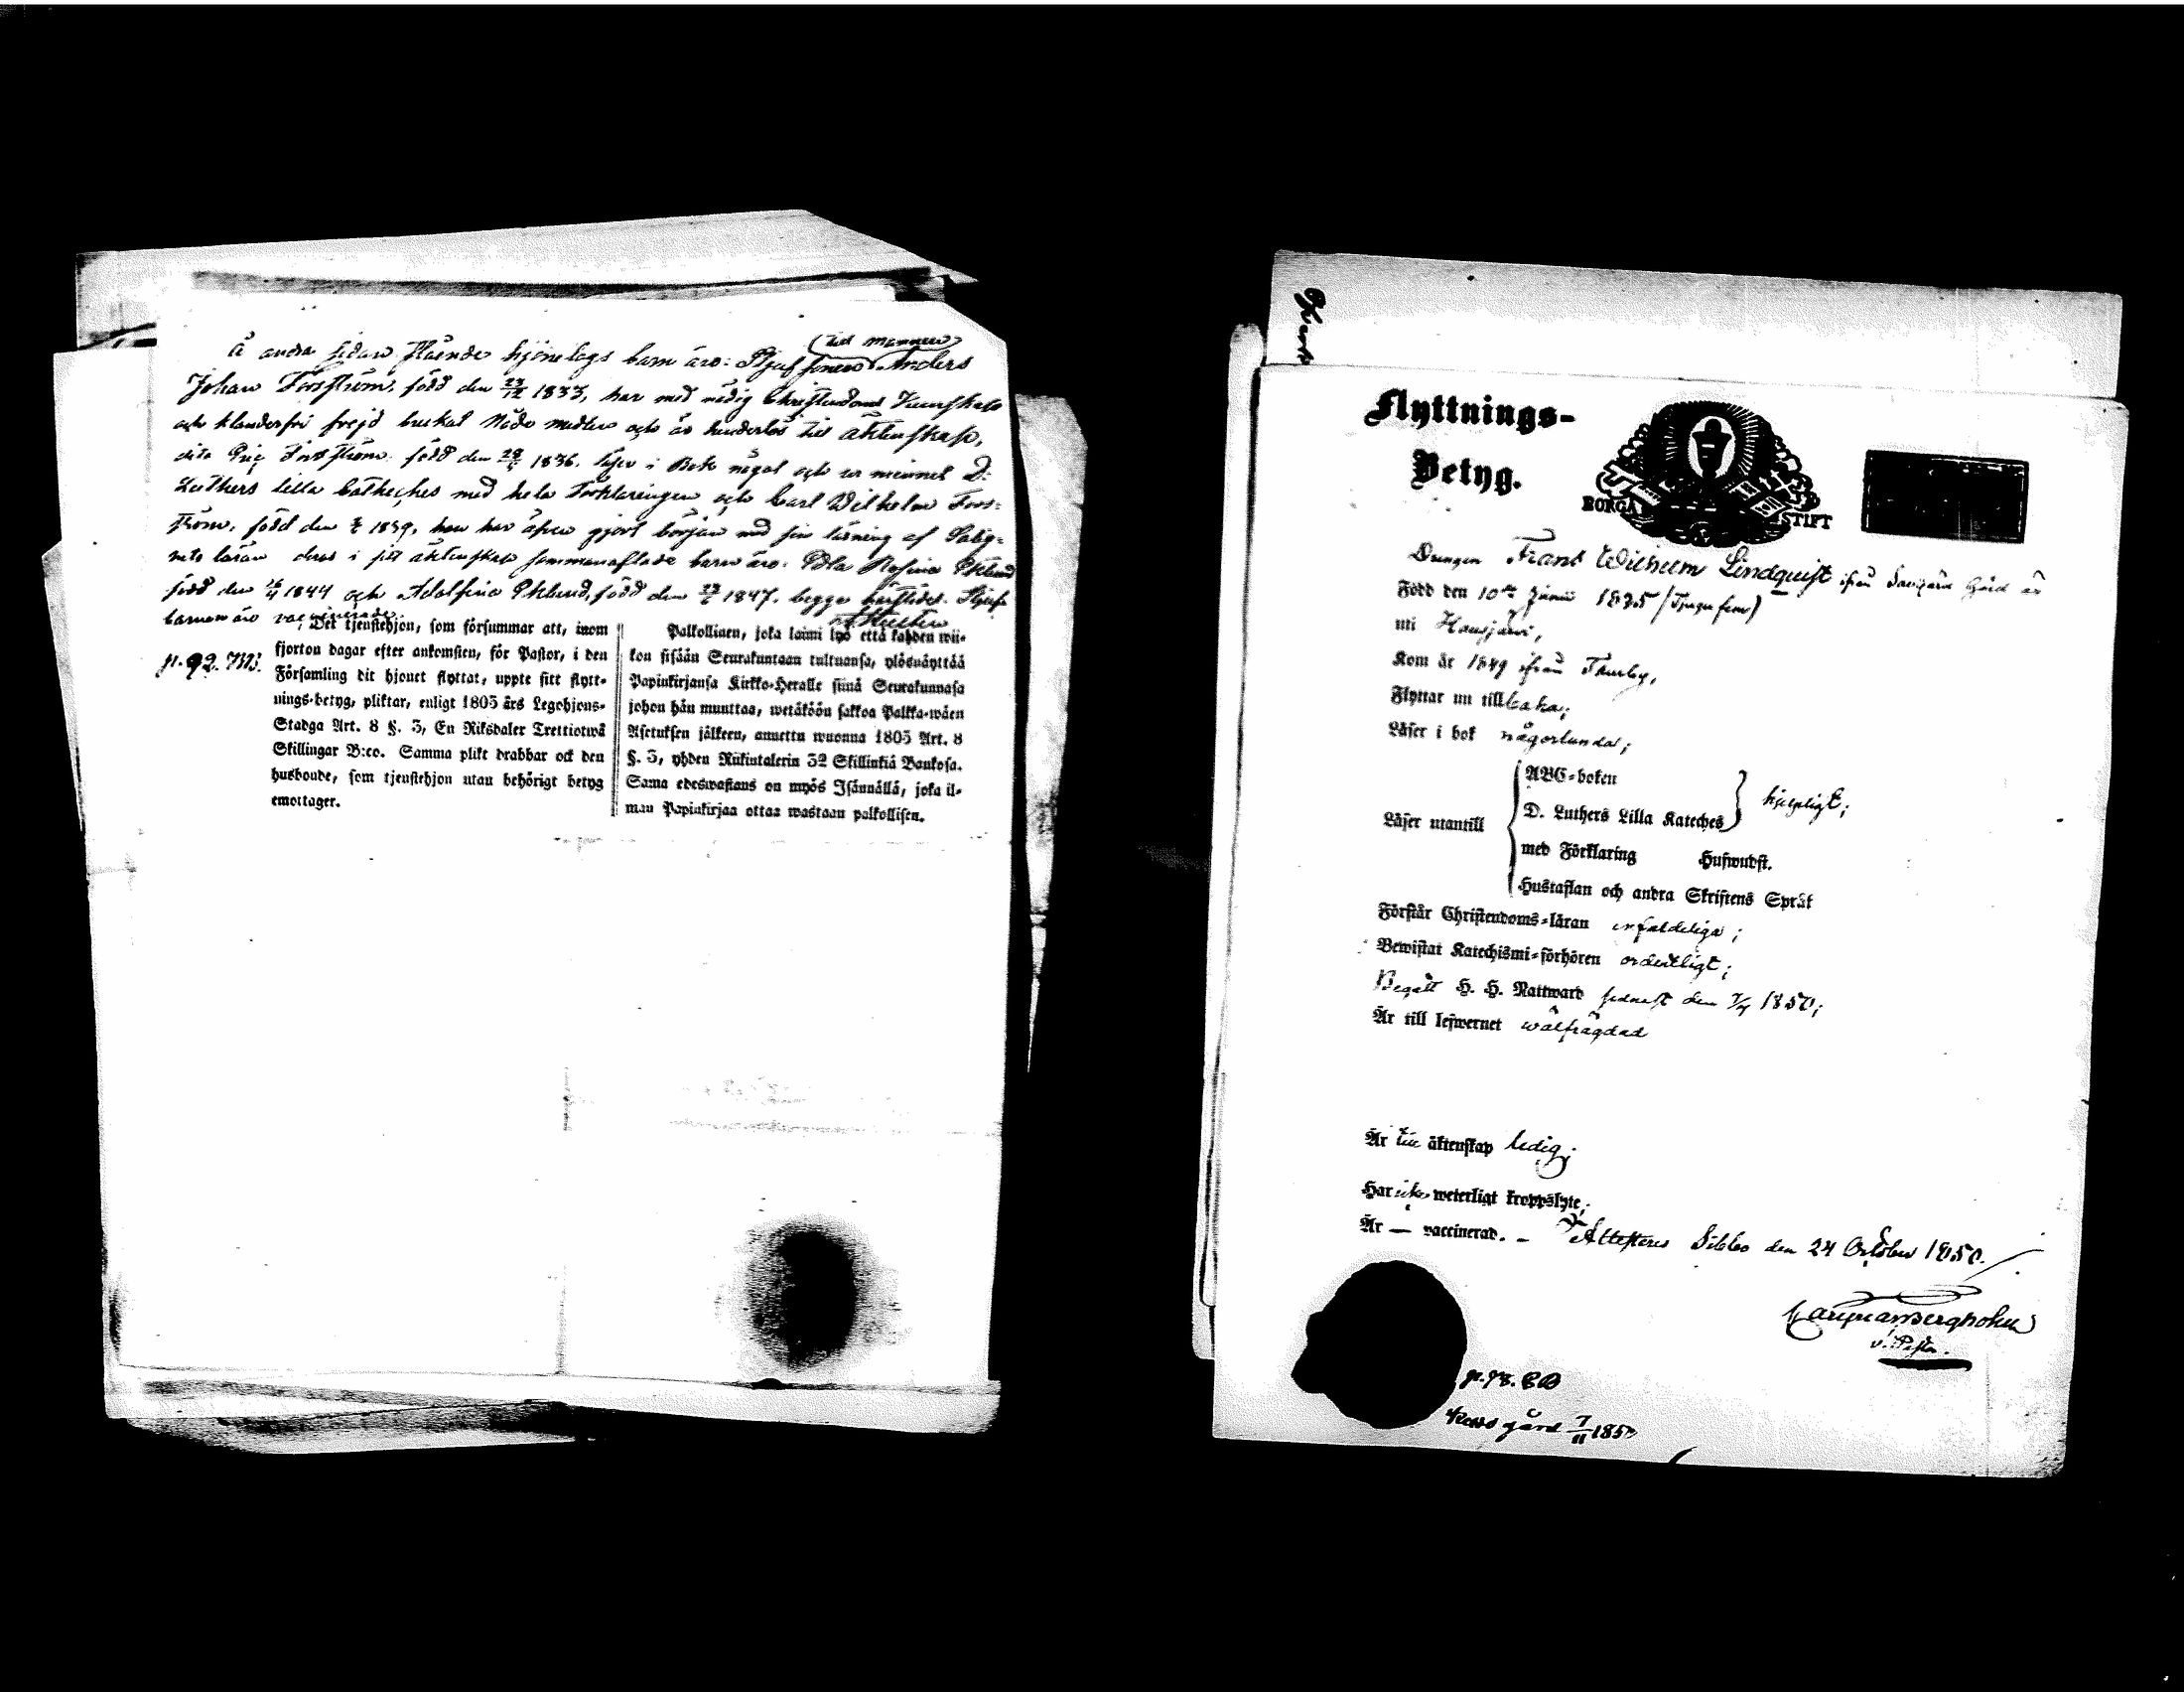 (till mannen)
Å andra sidan stående hjonelags barn äro: Stjufsonen Anders
Johan Forsström, född den 23/12 1833, har med nödig Christendoms Kunskap
och klanderfri frejd brukat Nådemedlen och är hinderlös till äktenskap,
dito Eric Forsström född den 1836. läser i Bok något och ur minnet D:
Luthers lilla Catheches med hela Förklaringen och Carl Wilhelm Fors-
ström, född den 1839, han har äfven gjort början med sin läsning af Salig-
hets läran deras i sitt äktenskap sammanaflade barn äro: Edla Rosina Eklund
född den 1844 och Adolfina Eklund, född den 1847. begge härstädes. Stjuf-
barnen äro vaccinerade.
p. 92. TB.
Det tjenstehjon, som försummar att, inom
fjorton dagar efter ankomsten, för Pastor, i den
Församling dit hjonet flyttat, uppte sitt flytt-
nings-betyg, pliktar, enligt 1805 års Legohjons-
Stadga Art. 8 §. 3, En Riksdaler Trettiotwå
Skillingar B:co. Samma plikt drabbar ock den
husbonde, som tjenstehjon utan behörigt betyg
emottager.
Palkollinen, joka laimi lyö että kahden wii-
kon sisään Seurakuntaan tultuansa, ylösnäyttää
Papinkirjansa Kirkko-Heralle siinä Seurakunnasa
johon hän muuttaa, wetäköön sakkoa Palkka-wäen
Asetuksen jälkeen, annettu wuonna 1805 Art. 8
§. 3, yhden Riikintalerin 32 Skillinkiä Bankosa.
Sama edeswastaus on myös Isännällä, joka il-
man Papinkirjaa ottaa wastaan palkollisen.
Flyttnings-
Betyg.
BORGÅ STIFT
Drengen Frans Wilhelm Lindquist ifrån gård är
Född den 10de Junii 1835 (Tjugu fem)
uti Hausjärvi,
Kom år 1849 ifrån Thusby,
Flyttar nu tillbaka;
Läser i bok någorlunda;
Läser utantill
ABC-boken
D. Luthers Lilla Kateches
hjelpligt;
med Förklaring Huswudst.
Hustaflan och andra Skriftens Språk
Förstår Christendoms-läran enfaldeliga;
Bewistat Katechismi-förhören ordentligt;
Begått H. H. Nattward sednast den 1850;
Är till lefwernet wälfrägdad
Är till äktenskap ledig;
Har icke weterligt kroppslyte;
Är — vaccinerad. -
Attesteras Sibbo den 24 October 1850.
Bergholm
v. Pastor.
p. 98. BB
gård 7/11 1850